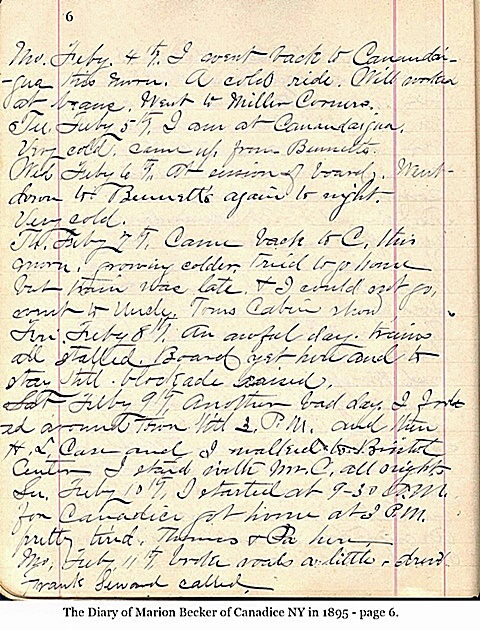 6
Mo. Feby. 4th. I went back to Canandai-
-gua this morn. A cold ride. Will worked
at beans. Went to Miller Corners.
Tu. Feby 5th. I am at Canandaigua.
Very cold. came up from Bennetts.
Wed Feby 6th. At session of board. Went
down to Bennetts again to night.
Very cold.
Th. Feby 7th. Came back to C. this
morn. growing colder. tried to go home
but train was late. & I could not go.
went to Uncle Toms Cabin show
Fri. Feby 8th. An awful day. trains
all stalled. Board yet here and to
stay till blockade raised.
Sat Feby 9th. Another bad day. I
around town till 2, P.M. and then
H. L. Case and I walked to Bristol
Center I staid with Mr. C. all night
Su. Feby 10th. I started at 9-30 A.M.
for Canadice got home at 3 P.M.
pretty tired. Thomas & Pa here
Mo. Feby 11th. broke roads a little.
Frank Seward called.
The Diary of Marion Becker of Canadice NY in 1895 - page 6.